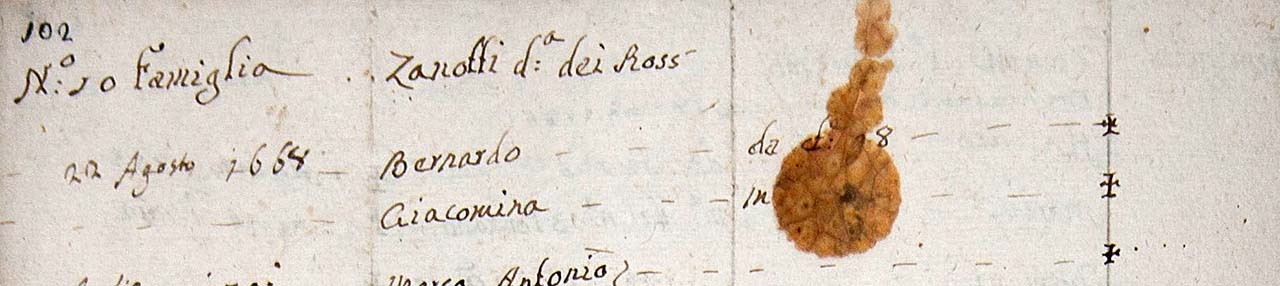 102
N.º 10 Famiglia Zanotti d.ª dei Ross
22 Agosto 1668 Bernardo da d: 98
Giacomina In
Antonio